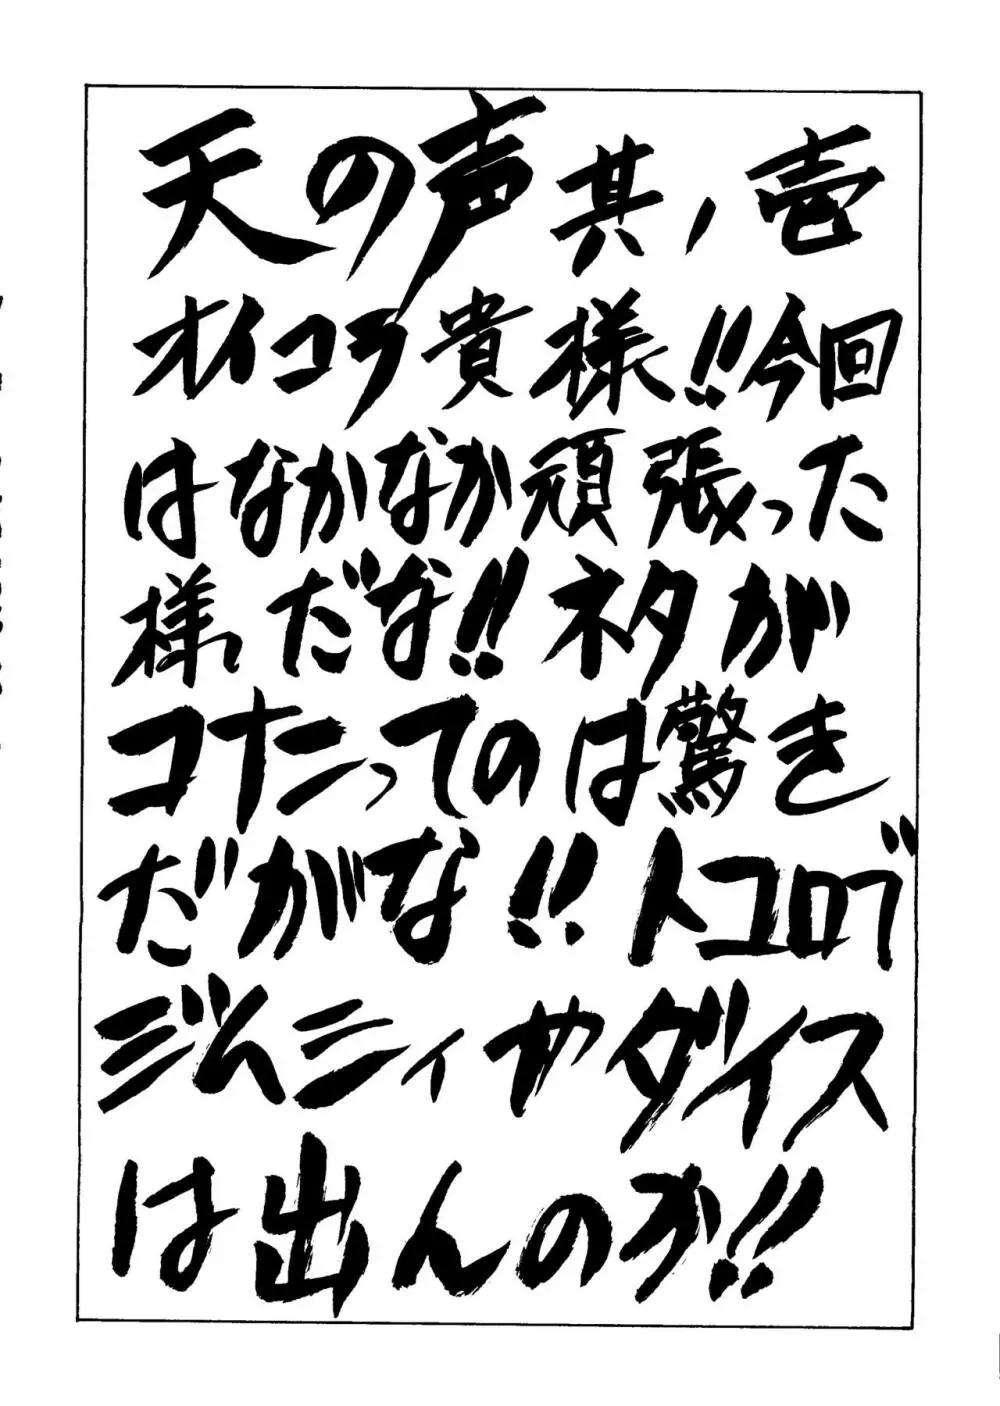 天の声其ノ壱
オイコラ貴様!!今回
はなかなか頑張った
様だな!!ネタが
コナンってのは驚き
だがな!!トコロデ
ジムシィやダイス
は出んのか!!